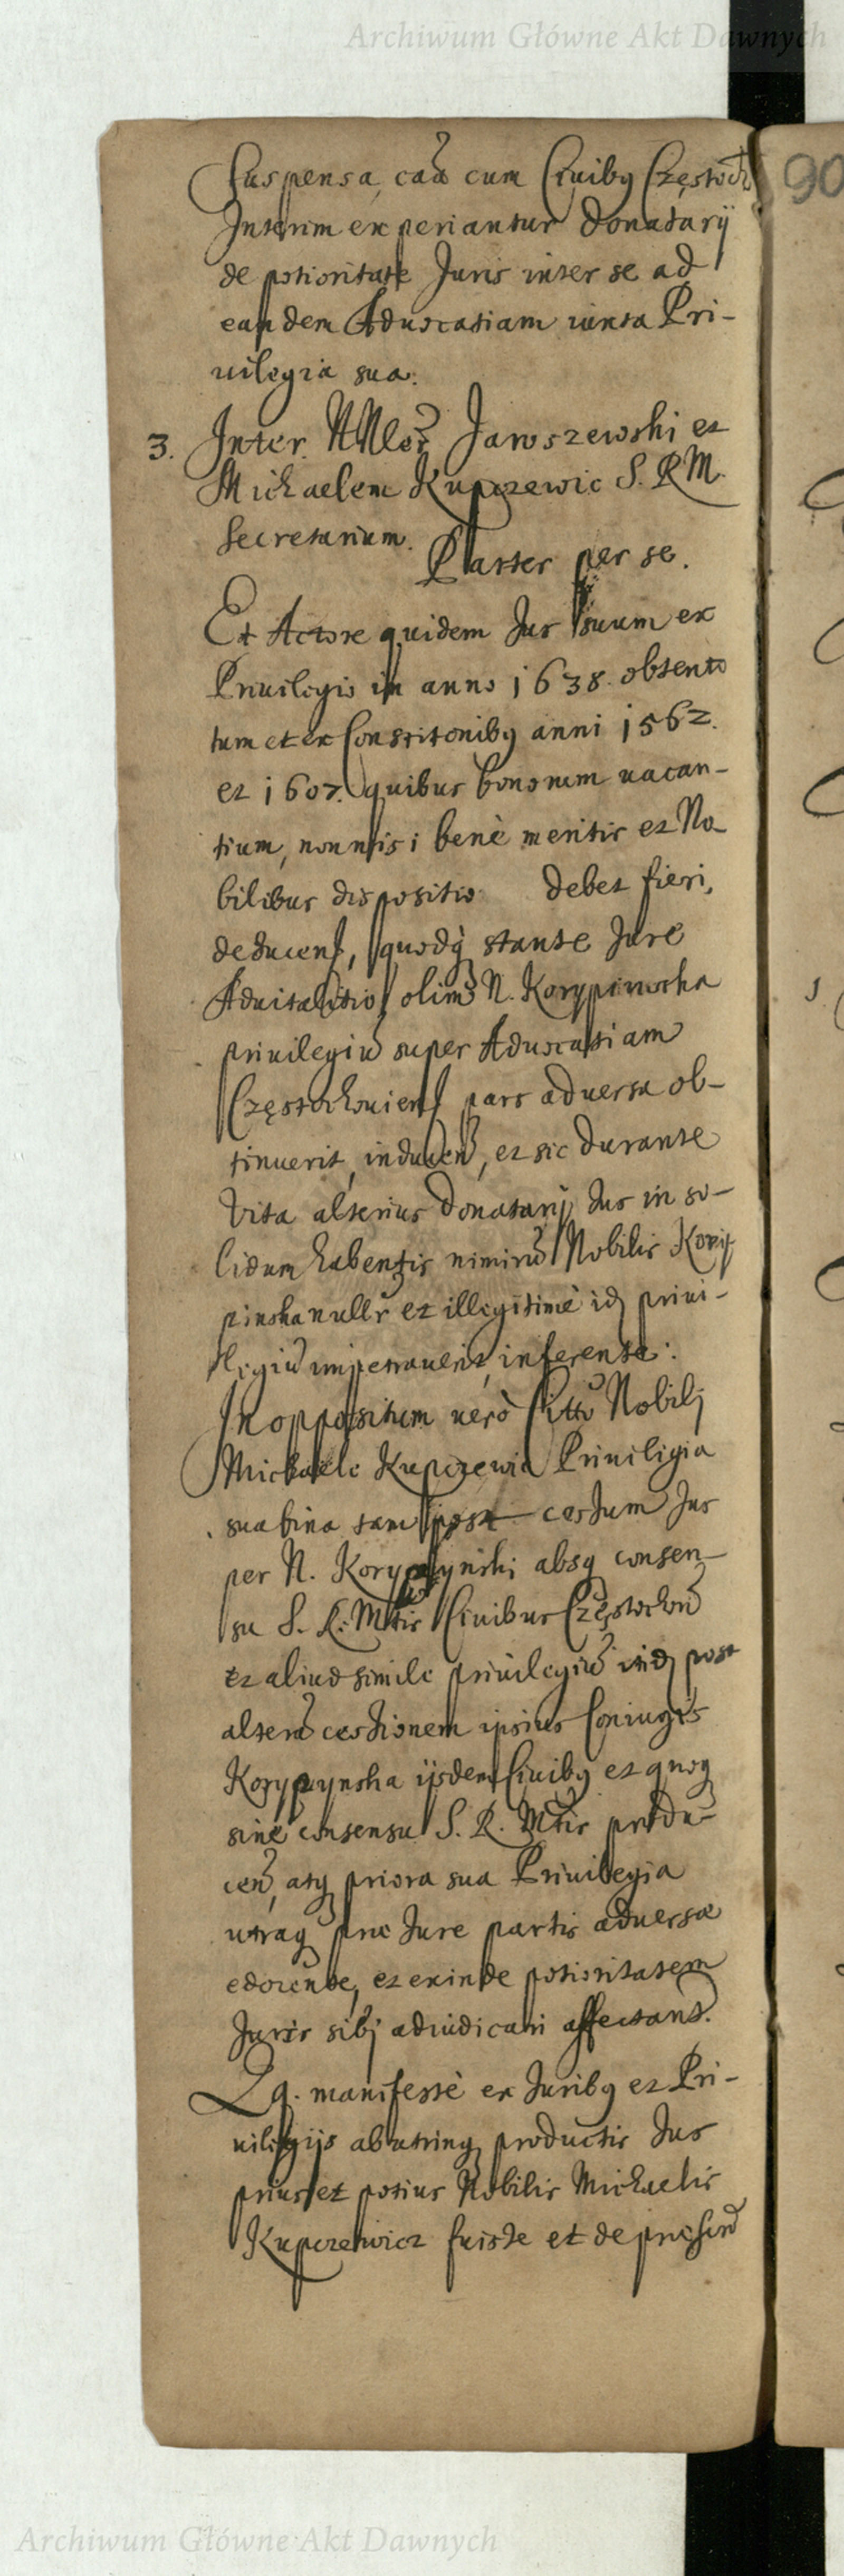 Archiwum Główne Akt Dawnych
Suspensa, caã cum Ciuibq Częstoch
90
Interim experiantur Donatarÿ
de potioritate Juris inter se ad
eandem Aduocatiam iuxta Pri-
uilegia sua.
3. Inter Jaroszewski et
Michaelem Kupczewic S. R M.
Secretarium.
Partes per se.
Et Actore quidem Jus suum ex
Priuilegio in anno 1638. obtento
tum et ex Constitonibq anni 1562.
et 1607. quibus bonorum uacan-
tium, non nisi benè meritis et No
bilibus dispositio debet fieri,
deducen, quodq stante Jure
Aduitalitio olim N. Korypinscha
priuilegiũ super Aduocatiam
Częstochouien pars aduersa ob-
tinuerit, inducen, et sic durante
Vita alterius Donatarij Jus in so-
lidum habentis nimirũ Nobilis Koryt
pinska nullr et illegitimè id priui-
legiũ impetrauerit, inferente.
In oppositum uerò Citto Nobilj
Michaele Kupczewic Priuiligia
sua bina tam post cessum Jus
per N. Korypynski absq consen-
su S. R. Mtis Ciuibus Częstochou
et aliud simile priuilegiũ itid post
alterã cessionem ipsius Coniugis
Korypynska ijsdem Ciuibq et quoq
sine consensu S. R. Mtis produ-
cen, atq priora sua Priuilegia
utraq prae Jure partis aduersae
edocente, et exinde potioritatem
Juris sibj adiudicari affectant.
Qq. manifestè ex Juribq et Pri-
uilegijs ab utrinq productis Jus
prius et potius Nobilis Michaelis
Kupczewicz fuisse et de presen
Archiwum Główne Akt Dawnych